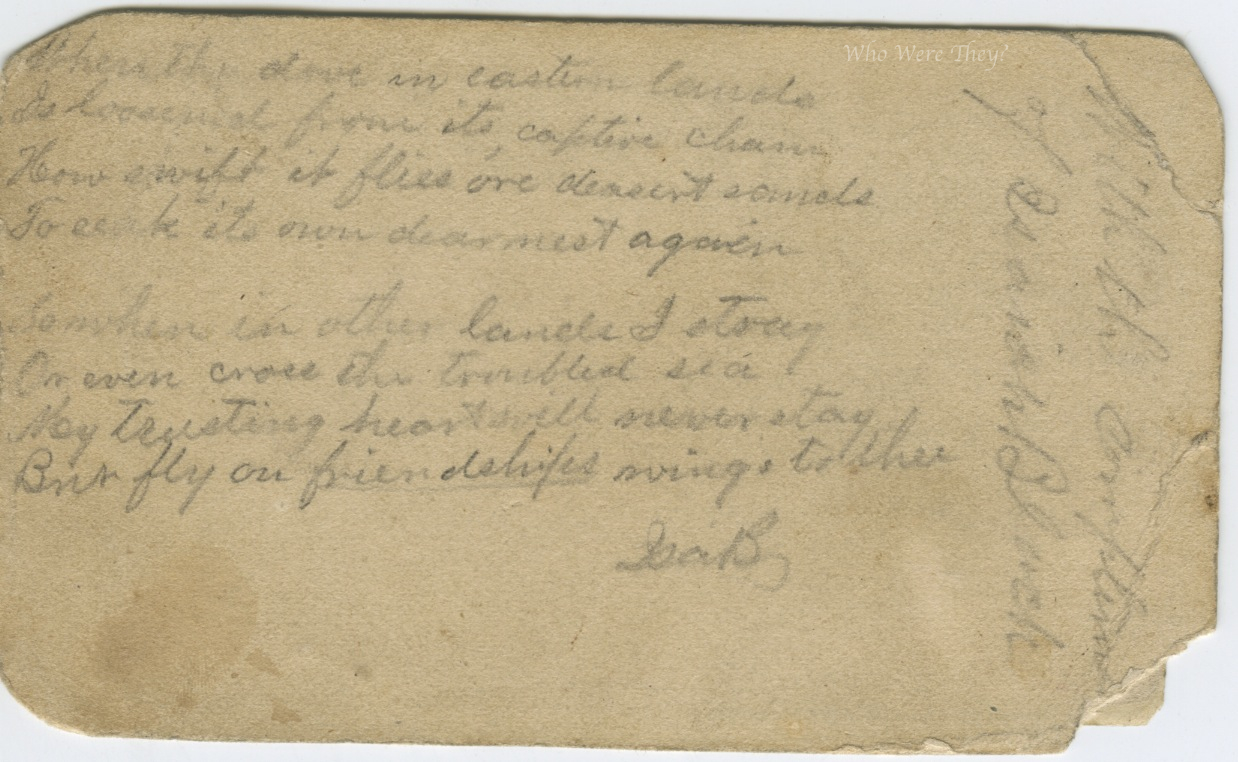 When the dove in eastern lands
Is loosened from its captive chain
How swift it flies o're desert sands
To seek its own dearmest again
So when in other lands I stray
Or even cross the troubled sea
My trusting heart will never stay
But fly on friendships wings to thee
With the
of
Who Were They?